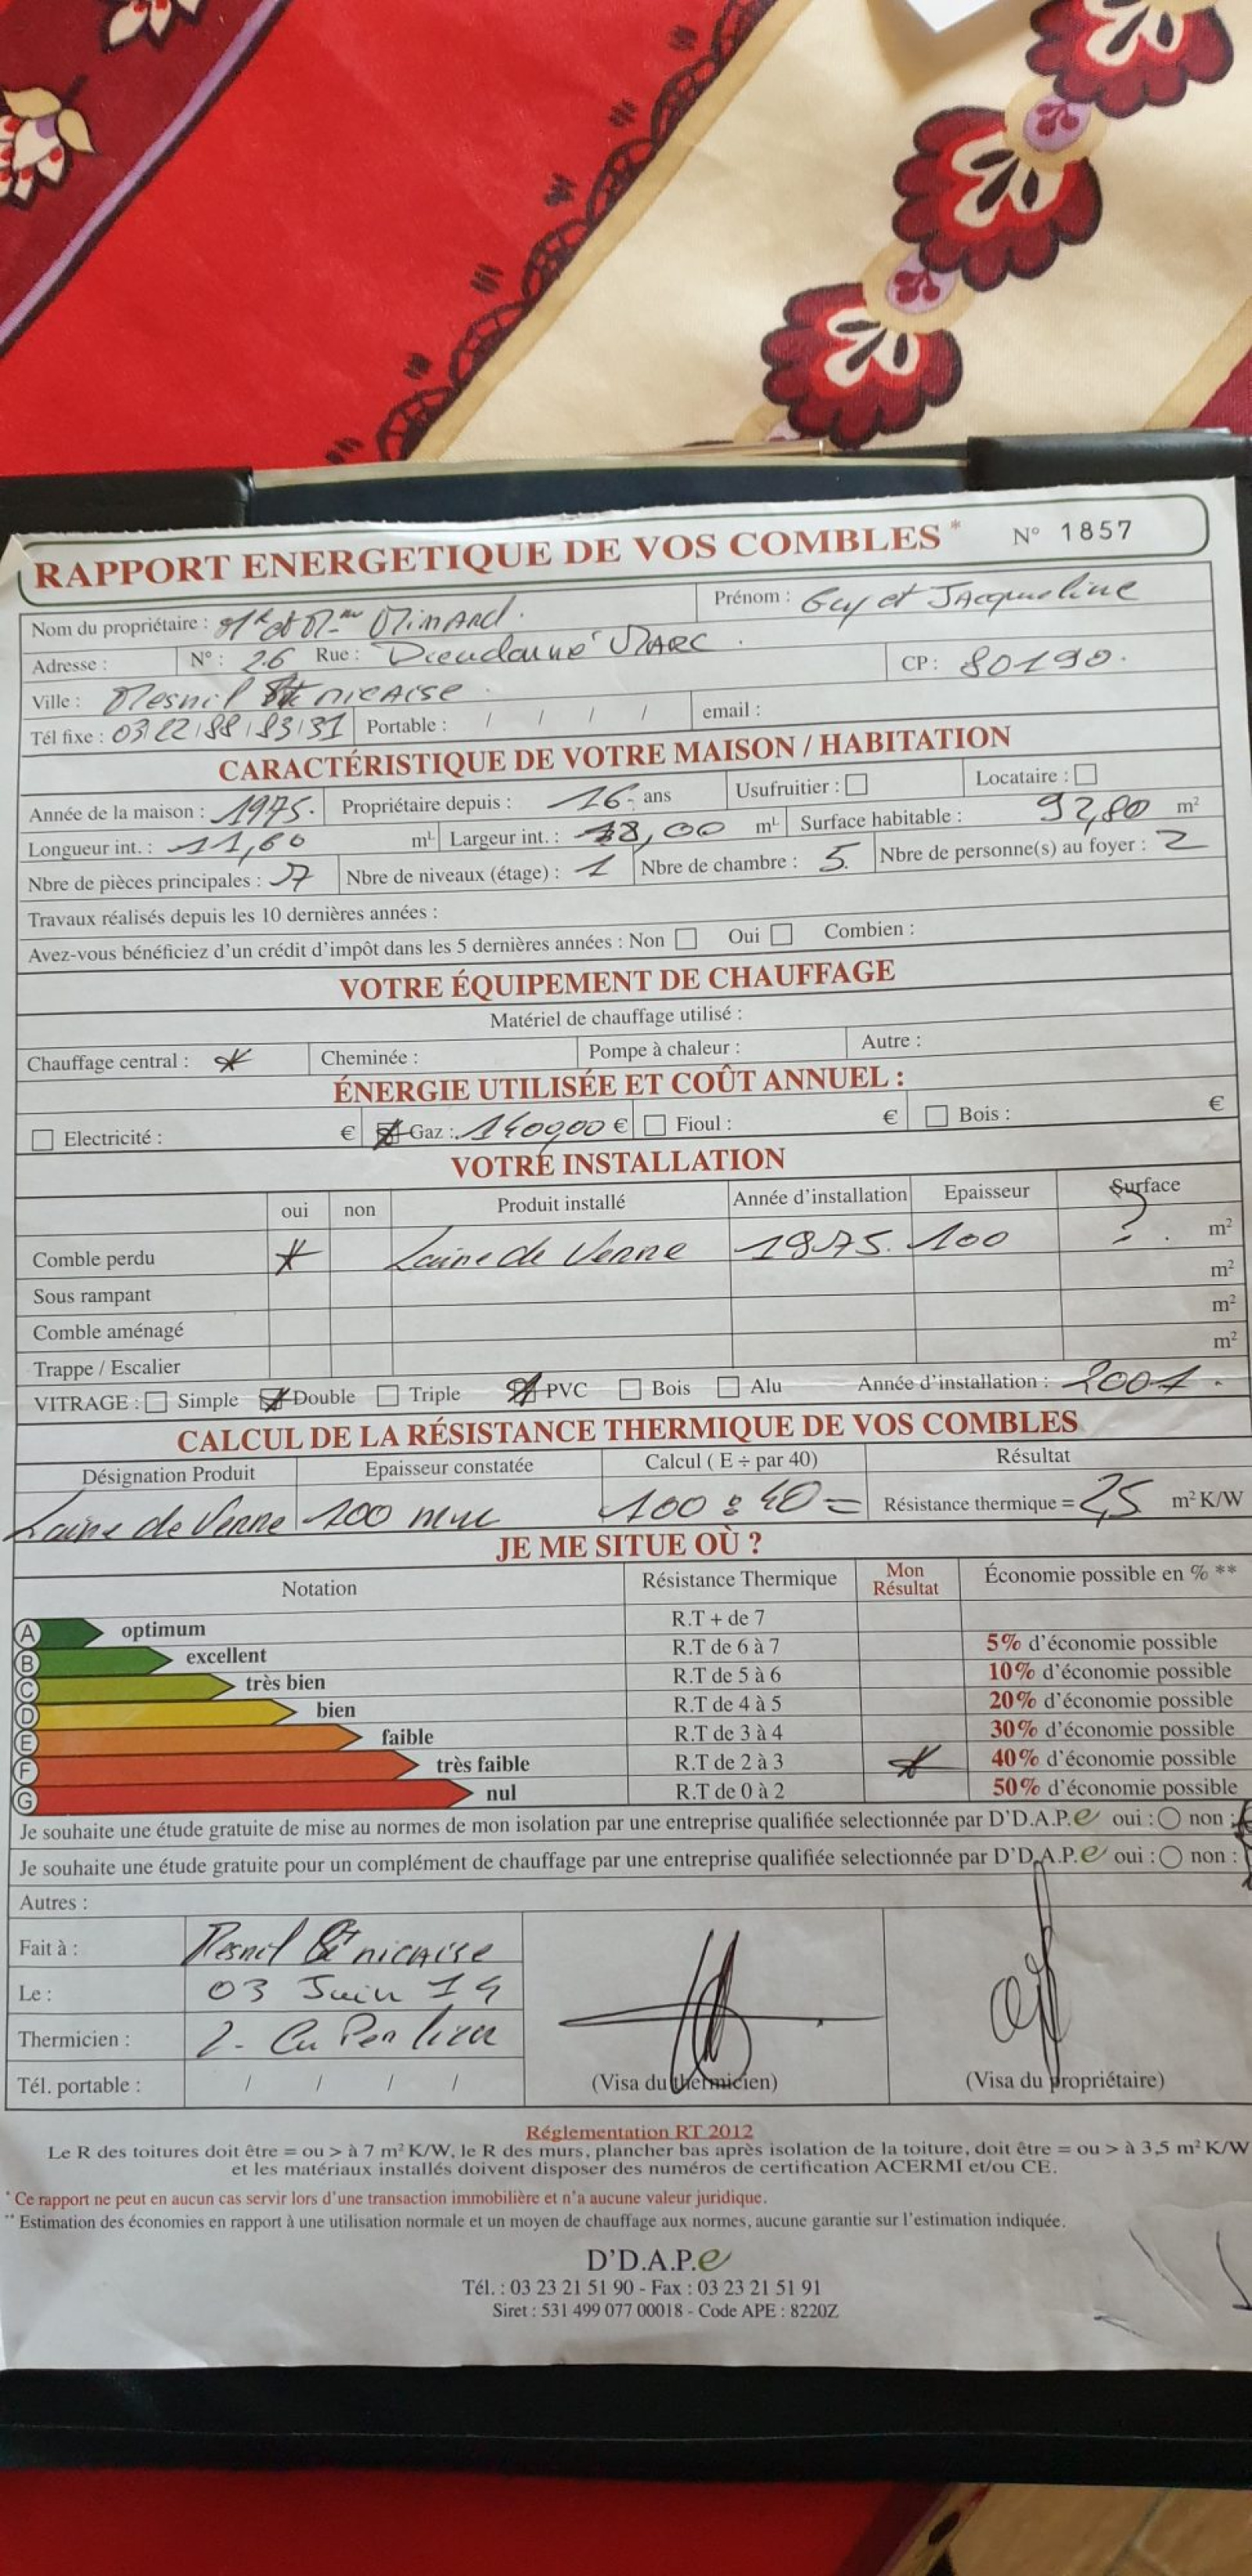 RAPPORT ENERGETIQUE DE VOS COMBLES * N° 1857
Nom du propriétaire : Mr et Mme MinARd. Prénom : Guy et JAcqueline
Adresse : N° : 26 Rue : Dieudonné MARC .
CP : 80190.
Ville : Mesnil St nicAise
Tél fixe : 03/22/88/83/31 Portable : / / / / email :
CARACTÉRISTIQUE DE VOTRE MAISON / HABITATION
Année de la maison : 1975. Propriétaire depuis : 16 ans Usufruitier : Locataire :
Longueur int. : 11,60 mL Largeur int. : 8,00 mL Surface habitable : 92,80 m²
Nbre de pièces principales : 7 Nbre de niveaux (étage) : 1 Nbre de chambre : 5. Nbre de personne(s) au foyer : 2
Travaux réalisés depuis les 10 dernières années :
Avez-vous bénéficiez d'un crédit d'impôt dans les 5 dernières années : Non Oui Combien :
VOTRE ÉQUIPEMENT DE CHAUFFAGE
Matériel de chauffage utilisé :
Chauffage central : Cheminée : Pompe à chaleur : Autre :
ÉNERGIE UTILISÉE ET COÛT ANNUEL :
Electricité : € Gaz : 1400,00 € Fioul : € Bois : €
VOTRE INSTALLATION
oui non Produit installé Année d'installation Epaisseur Surface
Comble perdu Laine de Verre 1975. 100 ? . m²
Sous rampant m²
Comble aménagé m²
Trappe / Escalier m²
VITRAGE : Simple Double Triple PVC Bois Alu Année d'installation : 2001.
CALCUL DE LA RÉSISTANCE THERMIQUE DE VOS COMBLES
Désignation Produit Epaisseur constatée Calcul ( E ÷ par 40) Résultat
Laine de Verre 100 mm 100 : 40 = Résistance thermique = 2,5 m² K/W
JE ME SITUE OÙ ?
Notation Résistance Thermique Mon Résultat Économie possible en % **
A optimum R.T + de 7
B excellent R.T de 6 à 7 5% d'économie possible
C très bien R.T de 5 à 6 10% d'économie possible
D bien R.T de 4 à 5 20% d'économie possible
E faible R.T de 3 à 4 30% d'économie possible
F très faible R.T de 2 à 3 40% d'économie possible
G nul R.T de 0 à 2 50% d'économie possible
Je souhaite une étude gratuite de mise au normes de mon isolation par une entreprise qualifiée selectionnée par D'D.A.P.e oui : non :
Je souhaite une étude gratuite pour un complément de chauffage par une entreprise qualifiée selectionnée par D'D.A.P.e oui : non :
Autres :
Fait à : Mesnil St nicAise
Le : 03 Juin 14
Thermicien :
Tél. portable : / / / / (Visa du thermicien) (Visa du propriétaire)
Réglementation RT 2012
Le R des toitures doit être = ou > à 7 m² K/W, le R des murs, plancher bas après isolation de la toiture, doit être = ou > à 3,5 m² K/W
et les matériaux installés doivent disposer des numéros de certification ACERMI et/ou CE.
* Ce rapport ne peut en aucun cas servir lors d'une transaction immobilière et n'a aucune valeur juridique.
** Estimation des économies en rapport à une utilisation normale et un moyen de chauffage aux normes, aucune garantie sur l'estimation indiquée.
D'D.A.P.e
Tél. : 03 23 21 51 90 - Fax : 03 23 21 51 91
Siret : 531 499 077 00018 - Code APE : 8220Z